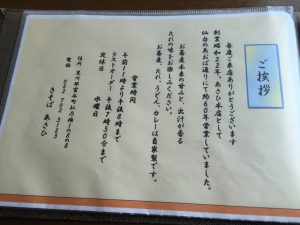 ご挨拶
毎度ご来店ありがとうございます
創業昭和22年。あさひ本店として
仙台のあおば通りにて約60年営業していました。
お蕎麦本来の甘みと、出汁が香る
たれの味をお楽しみください。
お蕎麦、たれ、うどん、カレーは自家製です。
営業時間
午前11時より午後8時まで
ラストオーダー 午後7時50分まで
定休日 水曜日
きそば あさひ
住所 黒川郡富谷町杜乃橋1の8の8
電話 022 702 3123